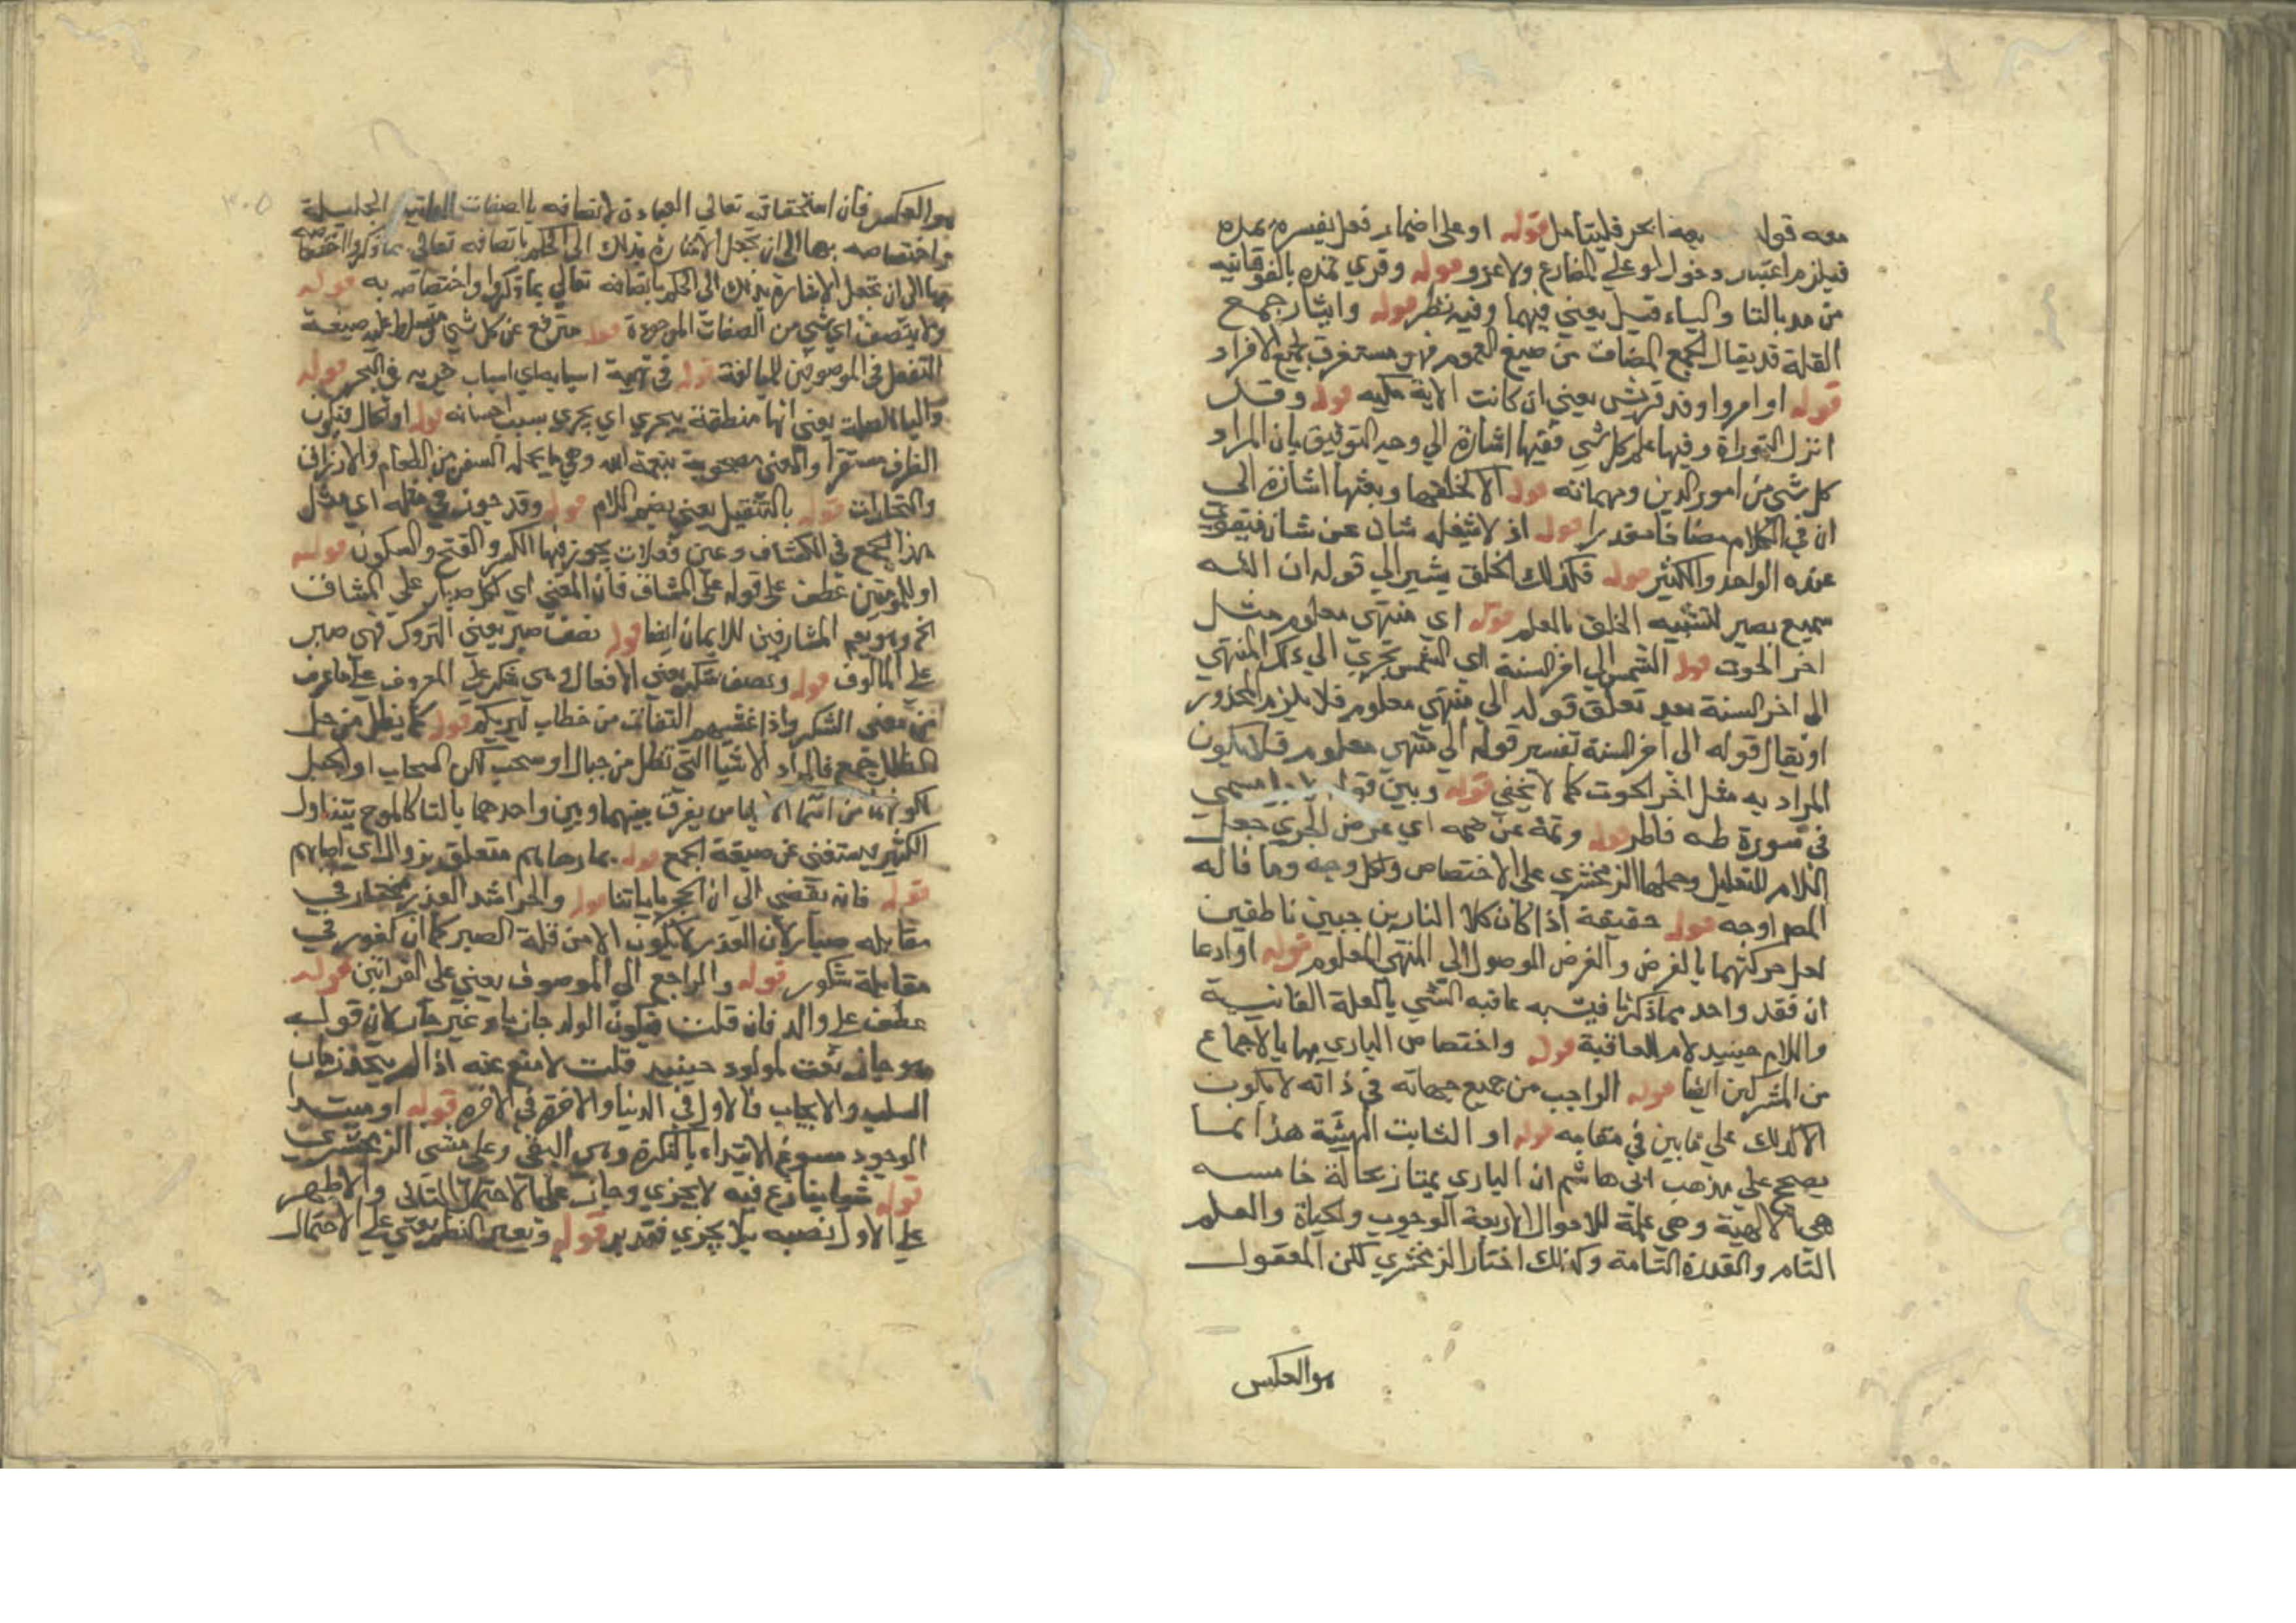 معه قوله سبعة ابحر فليتامل قوله او على اضمار فعل يفسره يمده
فيلزم اعتبار دخول لو على المضارع ولا غرو قوله وقري تمده بالفوقانيه
من مد بالتا والياء قيل يعني فيهما وفيه نظر قوله وايثار جمع
القلة قد يقال الجمع المضاف من صيغ العموم فهو مستغرق لجميع الافراد
قوله او امروا وفد قريش يعني ان كانت الاية مكيه قوله وقد
انزل التوراة وفيها علم كل شي ففيها اشارة الي وجه التوفيق بان المراد
كل شي من امور الدين ومهماته قوله الا كخلقها وبعثها اشارة الى
ان في الكلام مضافا مقدرا قوله اذ لا يشغله شان عن شان فيتفوت
عنده الواحد والكثير قوله فكذلك الخلق يشير الي قوله ان الله
سميع بصير لتشبيه الخلق بالعلم قوله اي منتهى معلوم مثل
اخر الحوت قوله الشمس الي اخر السنة اي الشمس تجري الي ذلك المنتهي
الى اخر السنة بعد تعلق قوله الي منتهي معلوم فلا يلزم المحذور
او يقال قوله الى اخر السنة تفسير قوله الي منتهي معلوم فلا يكون
المراد به مثل اخر الحوت كما لا يخفي قوله وبين قوله لاجل مسمي
في سورة طه فاطر قوله وثمة عن ضمه اي غرض الجري جعل
اللام للتعليل وحملها الزمخشري على الاختصاص ولكل وجه وما قاله
المص اوجه قوله حقيقة اذا كان كلا النارين جبين ناطقين
لعل حركتهما بالغرض والغرض الوصول الى المنتهي المعلوم قوله او ادعا
ان فقد واحد مما ذكرنا فيشبه عاقبه الشي بالعلة الغائيسة
واللام حينيد لام العاقبة قوله واختصاص الباري بها بالاجماع
من المشركين ايضا قوله الواجب من جميع جهاته في ذاته لا يكون
الا كذلك علي ما بين في مقامه قوله او الثابت الهيته هذا انما
يصح علي مذهب ابي هاشم ان الباري يمتاز بحالة خامسه
هي الالهية وهي علة للاحوال الاربعة الوجوب والحياة والعلم
التام والقدرة التامة وكذلك اختار الزمخشري لكن المعقول
هو العكس
هو العكس فان استحقاقه تعالي العبادة لاتصافه بالصفات الجليلة
واختصاصه بها الى ان تجعل الاشارة بذلك الى الحكم باتصافه تعالي بما ذكروا اختصاصه
بها الى ان تجعل الاشارة بذلك الى الحكم باتصافه تعالي بما ذكروا واختصاصه به قوله
ولا يتصف اي شي من الصفات الموجودة قوله مترفع عن كل شي ومتسلط عليه صيغة
التفعل في الموصوفين للمبالغة قوله في تهيئة اسبابه اي اسباب جريه في البحر قوله
والبا للصلة يعني انها متعلقة بتجري اي يجري بسبب احسانه قوله او الحال فيكون
الظرف مستقرا والمعنى مصحوبة بنعمة الله وهي ما يحمله السفر من الطعام والارزاق
والتجارات قوله بالتثقيل يعني بضم اللام قوله وقد جوز في مثله اي مثل
هذا الجمع في الكشاف وعين فعلات يجوز فيها الكسر والفتح والسكون قوله
او للمؤمنين عطف على قوله على المشاق فان المعنى اي لكل صبار علي المشاق
الخ وهو يعم المشارفين للايمان ايضا قوله نصف صبر يعني التروك فهي صبر
علي المالوف قوله ونصف شكر يعني الافعال وهي شكر على المعروف علي ما عرف
من معنى الشكر واذا غشيهم التفات من خطاب ليريكم قوله كما يظل من جبل
الظلل جمع فالمراد الاشيا التي تظل من جبال او سحب لكن السحاب او الجبل
لكونهما من اسما الاجناس يفرق بينهما وبين واحدهما بالتا كالموج يتناول
الكثير يستغنى عن صيغة الجمع قوله بما رهاهم متعلق بزوال اي اصابهم
قوله فانه نقضي الي ان الجحد باياتنا قوله والختر اشد الغدر فختار في
مقابله صبار لان الغدر لا يكون الا من قلة الصبر كما ان كفور في
مقابلة شكور قوله والراجع الى الموصوف يعني على القراتين قوله
عطف علي والد فان قلت فيكون الولد جازيا وغير جاز لان قوله
هو جاز نعت لمولود حينيد قلت لا منع عنه اذا لم يتحد زمان
السلب والايجاب فالاول في الدنيا والاخر في الاخرة قوله او مبتدا
الوجود مسوغ الابتداء بالنكرة وهي النفي وعلى مشى الزمخشري
قوله شيا ينازع فيه لا يجزي وجاز على الاحتمال الثاني والاظهر
على الاول نصبه بلا يجزي فتدبر قوله وتغيير النظم يعني علي الاحتمال